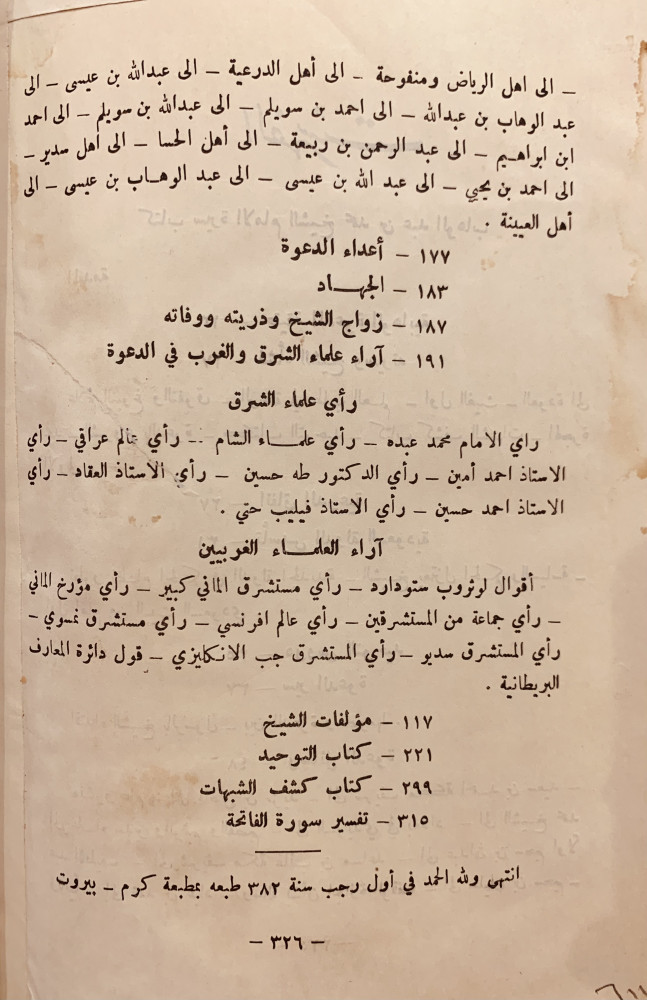 ـ الى اهل الرياض ومنفوحة ـ الى أهل الدرعية ـ الى عبدالله بن عيسى ـ الى
عبد الوهاب بن عبدالله ـ الى احمد بن سويلم ـ الى عبدالله بن سويلم ـ الى احمد
ابن ابراهيم ـ الى عبد الرحمن بن ربيعة ـ الى أهل الحسا ـ الى اهل سدير ـ
الى احمد بن يحيي ـ الى عبد الله بن عيسى ـ الى عبد الوهاب بن عيسى ـ الى
أهل العيينة .
١٧٧ ـ أعداء الدعوة
١٨٣ ـ الجهاد
١٨٧ ـ زواج الشيخ وذريته ووفاته
١٩١ ـ آراء علماء الشرق والغرب في الدعوة
رأي علماء الشرق
راي الامام محمد عبده ـ رأي علماء الشام ـ رأي عالم عراقي ـ رأي
الاستاذ احمد أمين ـ رأي الدكتور طه حسين ـ رأي الأستاذ العقاد ـ رأي
الاستاذ احمد حسين ـ رأي الاستاذ فيليب حتي .
آراء العلماء الغربيين
أقوال لوثروب ستودارد ـ رأي مستشرق الماني كبير ـ رأي مؤرخ الماني
ـ رأي جماعة من المستشرقين ـ رأي عالم افرنسي ـ رأي مستشرق نمسوي ـ
رأي المستشرق سديو ـ رأي المستشرق جب الانكليزي ـ قول دائرة المعارف
البريطانية .
١١٧ ـ مؤلفات الشيخ
٢٢١ ـ كتاب التوحيد
٢٩٩ ـ كتاب كشف الشبهات
٣١٥ ـ تفسير سورة الفاتحة
انتهى ولله الحمد في أول رجب سنة ٣٨٢ طبعه بمطبعة كرم ـ بيروت
ـ ٣٢٦ ـ